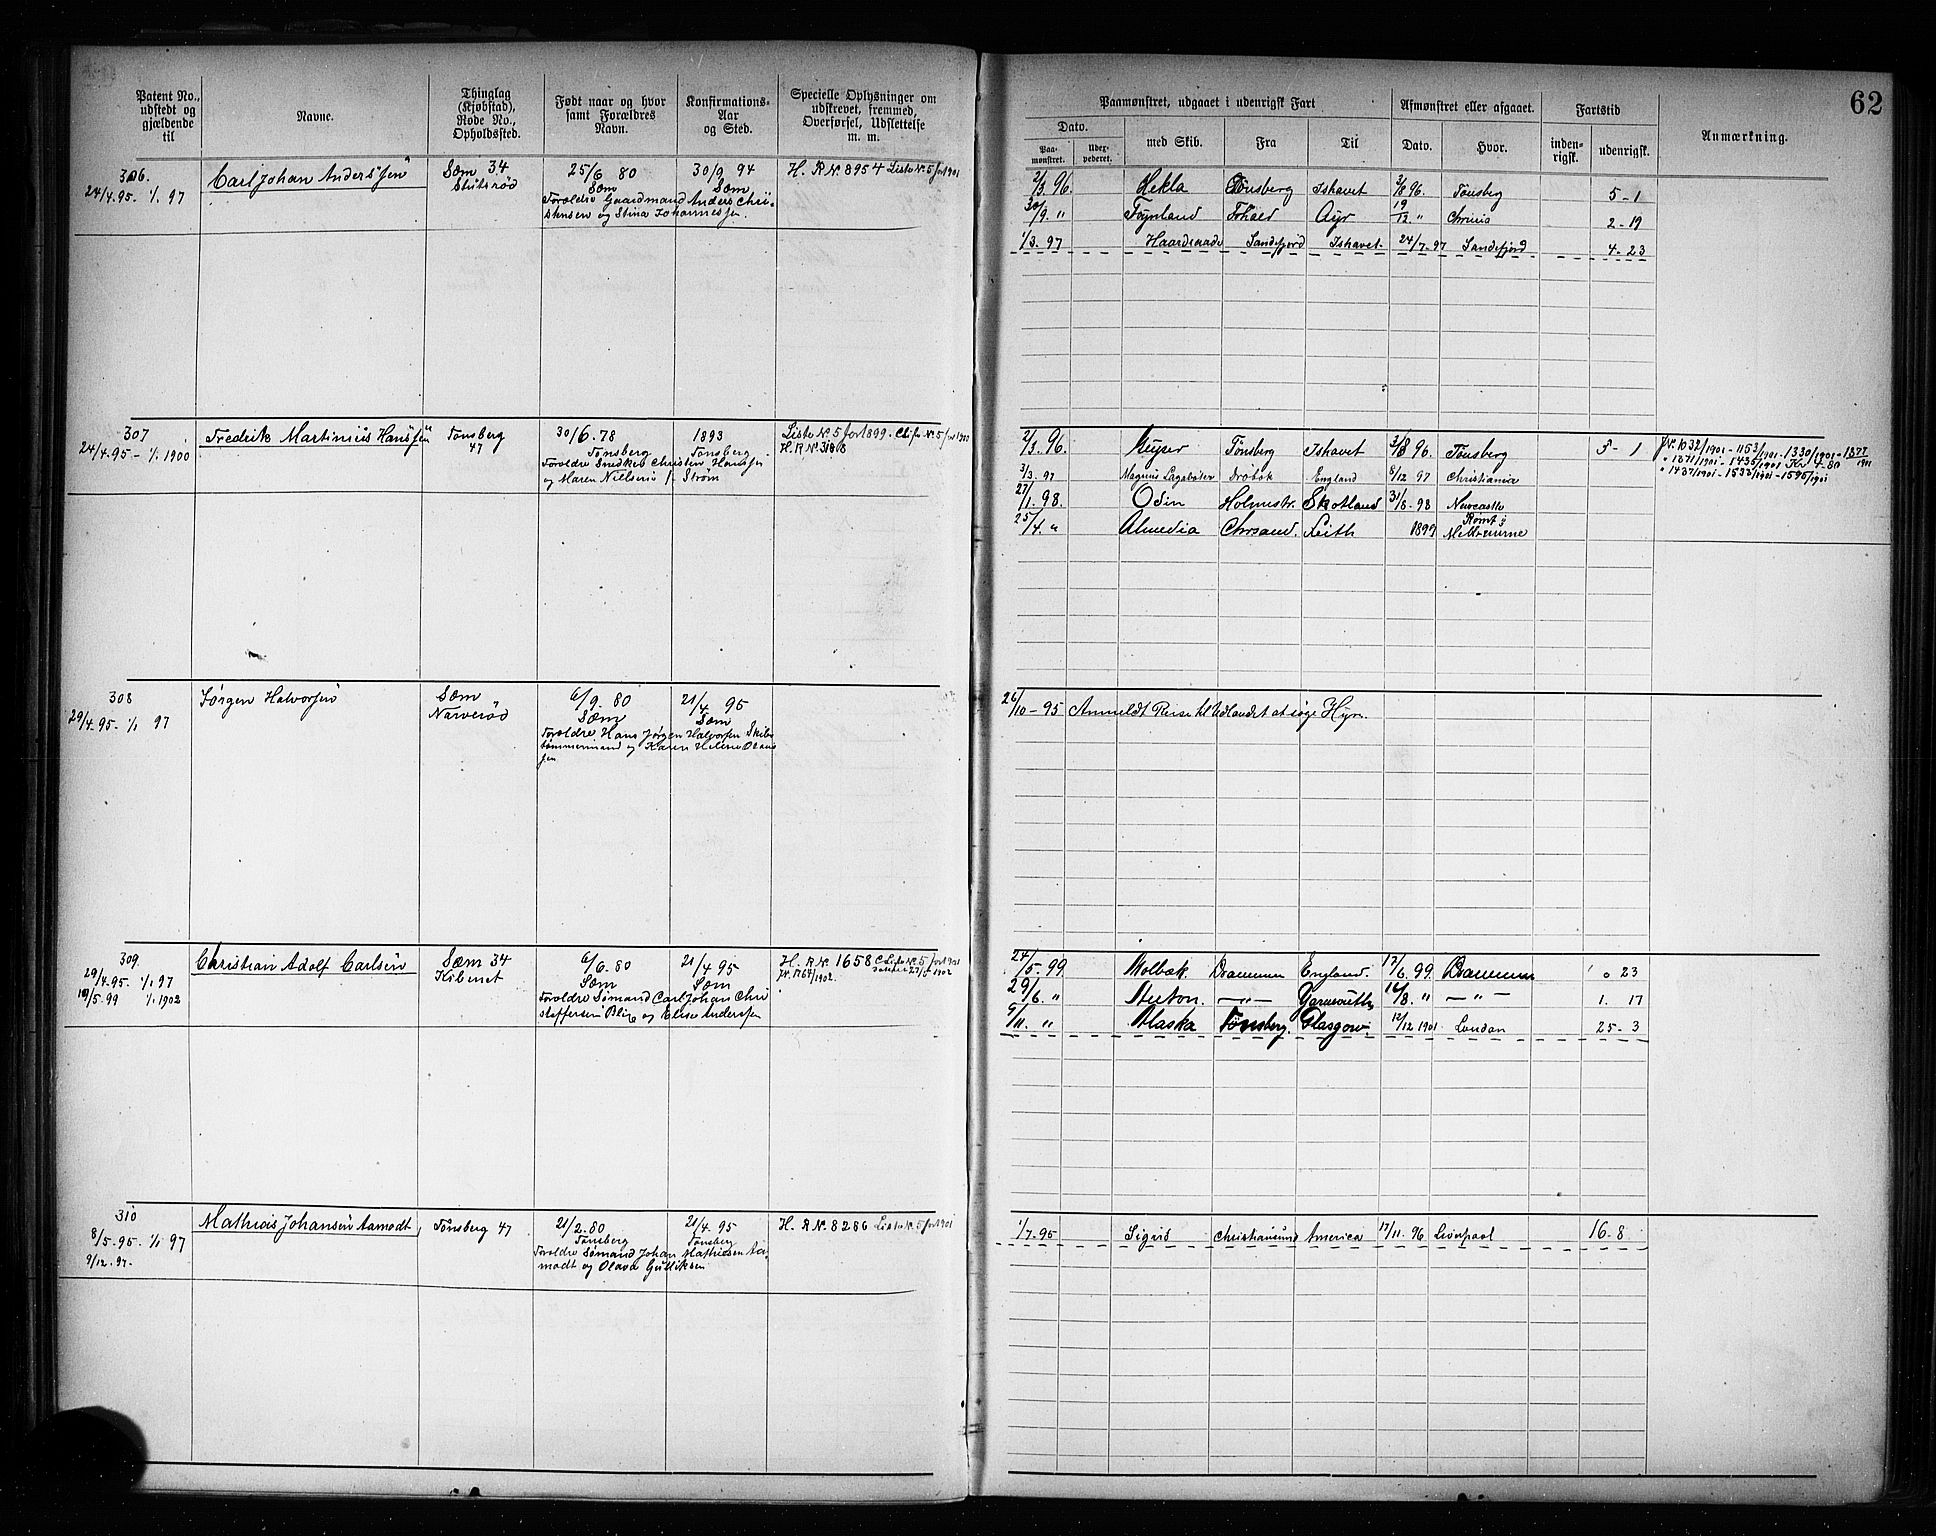 62
Patent No., udstedt og gjældende til
Navne.
Thinglag (Kjøbstad), Rode No., Opholdssted.
Født naar og hvor samt Forældres Navn.
Konfirmations-Aar og Sted.
Specielle Oplysninger om udskrevet, fremmed, Overførsel, Udslettelse m. m.
Paamønstret, udgaaet i udenrigsk Fart
Afmønstret eller afgaaet.
Fartstid
Anmærkning.
Dato.
Paa-mønstret.
Udex-pederet.
med Skib.
Fra
Til
Dato.
Hvor.
inden-rigsk.
udenrigsk.
306.
24/4.95 - 1/1 97
Carl Johan Anderssen
Sæm 34
25/6 80
Sæm
Forældre Gaardmand Anders Chri-
stensen og Stina Johannessen.
30/9 94
Sæm
H. R No 8954 Liste No 5 for 1901
2/3 96. Hekla Tønsberg Ishavet 3/8 96. Tønsberg 5 - 1
30/9. " Ayr 19/12. " Chrnia 2 - 19
1/3. 97 Haardraade Sandefjord Ishavet. 24/7. 97 Sandefjord 4 - 23
307
24/4.95 - 1/1. 1900
Fredrik Martinius Hanssen
Tønsberg
47
30/6. 78
Tønsberg
Forældre Snedker Christen Hanssen
og Maren Nielsine f. Strøm
1893
Tønsberg
Liste No 5 for 1899.
H. R No 3168
2/3 96. Geyser Tønsberg Ishavet 3/8 96. Tønsberg 5 - 1
3/3. 97 Magnus Lagabøter Drøbak England 8/12 97 Christiania
27/1. 98. Odin Holmestr. Skotland 31/5 - 98 Newcastle
25/4. " Almedia Chrsand. Leith 1899 Rømt i
Melbourne
JNo 1032/1901 - 1153/1901 - 1330/1901 - 1377/1901
" 1371/1901 - 1435/1901 Kr 4.80
" 1437/1901 - 1533/1901 - 1595/1901
308
29/4.95 - 1/1 97
Jørgen Halvorsen
Sæm
Narverød
6/9. 80
Sæm
Forældre Hans Jørgen Halvorsen Skibs
tømmermand og Karen Helene Olaus
sen
21/4 95
Sæm
26/10 - 95 Anmeldt Reise til Udlandet at søge Hyre.
309
29/4.95. 1/1 97
10/5.99 1/1.1902
Christian Adolf Carlsen
Sæm 34
6/6. 80
Sæm
Forældre Sømand Carl Johan Chri
stoffersen Blix og Elise Anderssen
21/4 95
Sæm
H. R No 1658
24/5. 99. Molbæk. Drammen England. 17/6 99. Drammen 23
29/6. " Teuton. — " — Yarmouth 16/8. " — " — 1. 17
9/11. " Alaska Tønsberg. Glasgow. 12/12 1901 London 25 - 3
310
8/5.95. 1/1 97
9/12. 97.
Mathias Johansen Aamodt
Tønsberg 47
21/2. 80
Tønsberg
Forældre Sømand Johan Mathiesen Aa-
modt og Olava Gulliksen
21/4. 95
Tønsberg
H. R No 8286 Liste No 5 for 1901
1/7. 95 Sigrid Christiansund America 17/11. 96 Liverpool 16 - 8